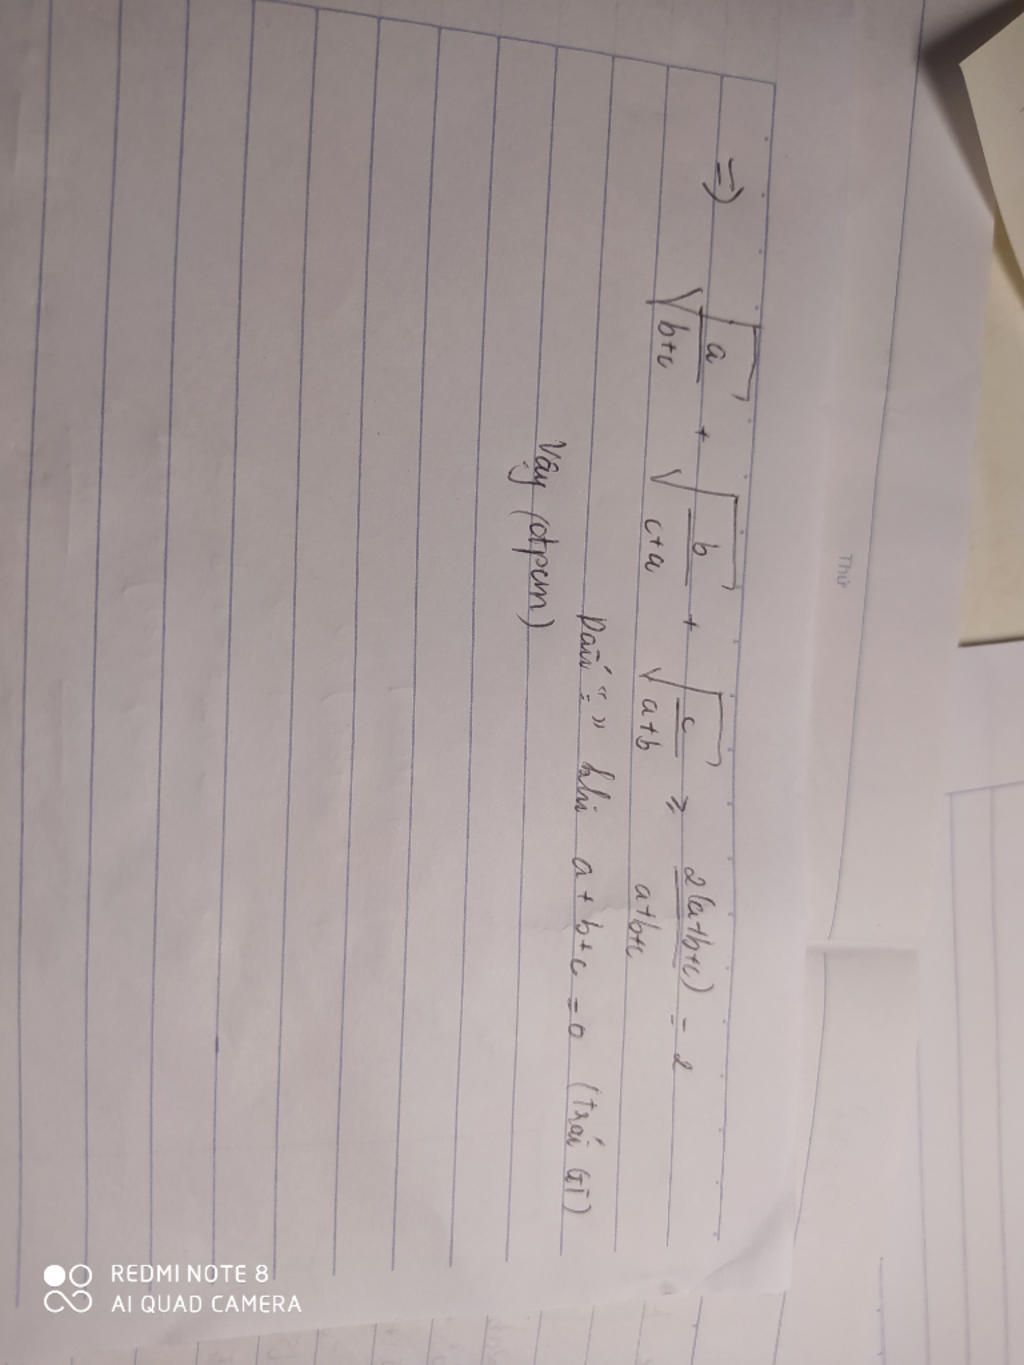 Thứ
=> √(a/(b+c)) + √(b/(c+a)) + √(c/(a+b)) ≥ 2(a+b+c)/(a+b+c) = 2
Dấu "=" khi a+b+c=0 (trái GT)
Vậy (đpcm)
REDMI NOTE 8
AI QUAD CAMERA